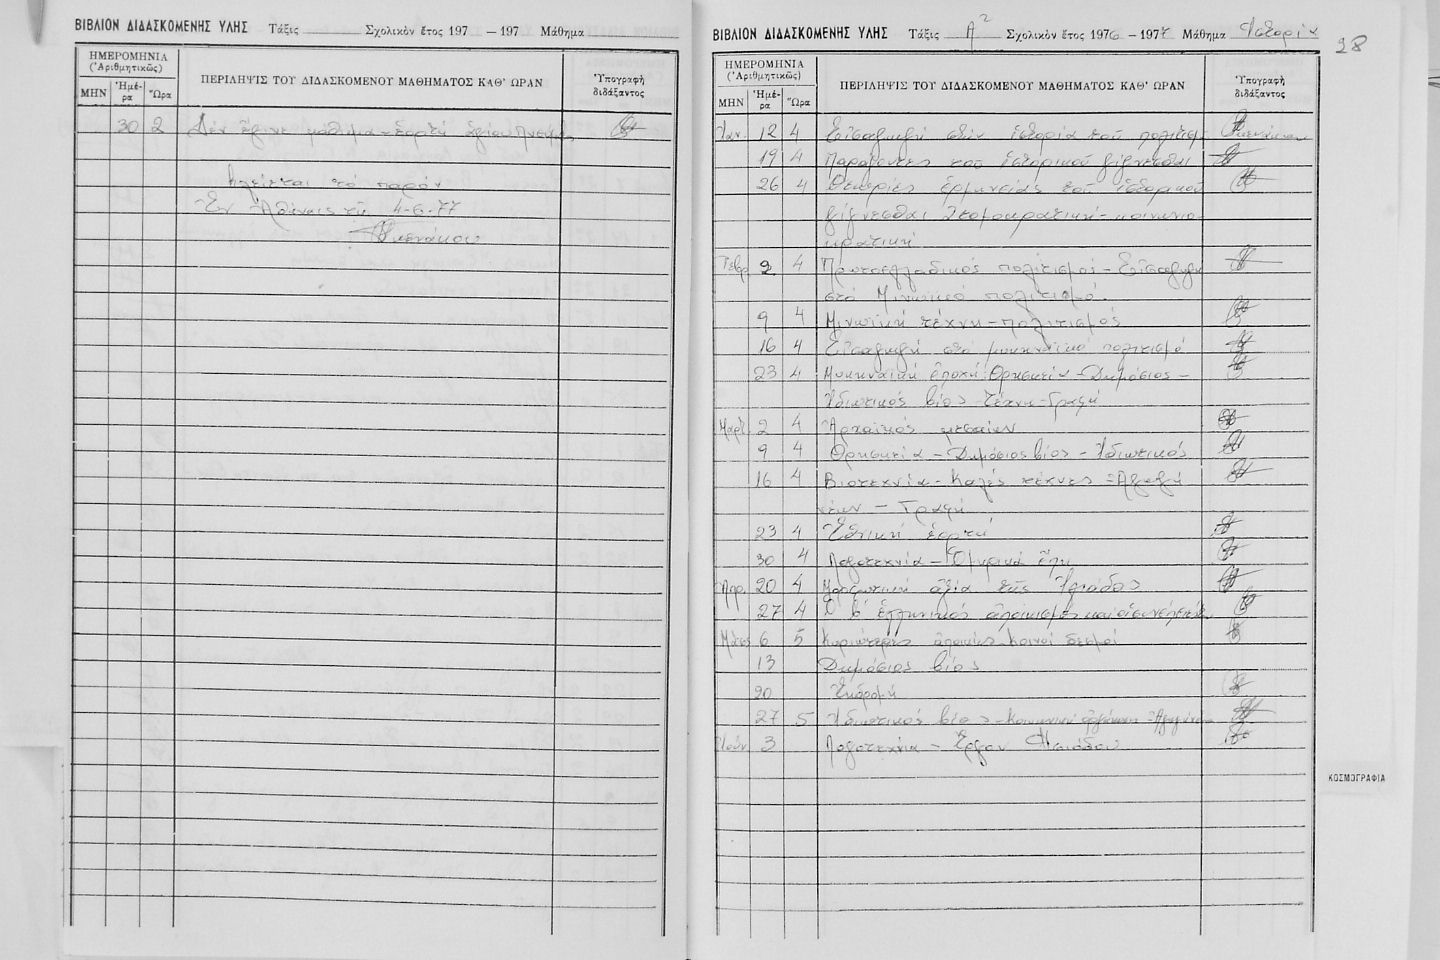 ΒΙΒΛΙΟΝ ΔΙΔΑΣΚΟΜΕΝΗΣ ΥΛΗΣ Τάξις Σχολικὸν ἔτος 197 – 197 Μάθημα
ΗΜΕΡΟΜΗΝΙΑ
(Ἀριθμητικῶς)
ΜΗΝ Ἡμέ-ρα Ὥρα
ΠΕΡΙΛΗΨΙΣ ΤΟΥ ΔΙΔΑΣΚΟΜΕΝΟΥ ΜΑΘΗΜΑΤΟΣ ΚΑΘ' ΩΡΑΝ
Ὑπογραφὴ
διδάξαντος
30 2 Δέν ἔγινε μάθημα - ἑορτή ἁγίου Πνεύμ.
Κλείεται τό παρόν
Ἐν Ἀθήναις τῇ 4-6-77
ΒΙΒΛΙΟΝ ΔΙΔΑΣΚΟΜΕΝΗΣ ΥΛΗΣ Τάξις Α2 Σχολικὸν ἔτος 1976 – 1977 Μάθημα Ἱστορία
28
ΗΜΕΡΟΜΗΝΙΑ
(Ἀριθμητικῶς)
ΜΗΝ Ἡμέ-ρα Ὥρα
ΠΕΡΙΛΗΨΙΣ ΤΟΥ ΔΙΔΑΣΚΟΜΕΝΟΥ ΜΑΘΗΜΑΤΟΣ ΚΑΘ' ΩΡΑΝ
Ὑπογραφὴ
διδάξαντος
Ἰαν. 12 4 Εἰσαγωγή στήν ἱστορία τοῦ πολιτισμ
19 4 Παράγοντες τοῦ ἱστορικοῦ γίγνεσθαι
26 4 Θεωρίες ἑρμηνείας τοῦ ἱστορικοῦ
γίγνεσθαι Ἀτομοκρατική - κοινωνιο-
κρατική
Φεβρ 2 4 Πρωτοελλαδικός πολιτισμός - Εἰσαγωγή
στό Μινωικό πολιτισμό.
9 4 Μινωική τέχνη - πολιτισμός
16 4 Εἰσαγωγή στό μυκηναϊκό πολιτισμό
23 4 Μυκηναϊκή ἐποχή Θρησκεία - Δημόσιος -
Ἰδιωτικός βίος - Τέχνη - Γραφή
Μαρτ. 2 4 Ἀρχαϊκός μεσαίων
9 4 Θρησκεία - Δημόσιος βίος - Ἰδιωτικός
16 4 Βιοτεχνία - Καλές τέχνες - Ἀγωγή
νέων - Γραφή
23 4 Ἐθνική ἑορτή
30 4 Λογοτεχνία - Ὁμηρικά ἔπη
Ἀπρ. 20 4 Μορφωτική ἀξία τῆς Ἰλιάδος
27 4 Ὁ β' ἑλληνικός ἀποικισμός καί οἱ συνέπειες
Μάιος 6 5 Κυριώτερες ἀποικίες - Κοινοί δεσμοί
13 Δημόσιος βίος
20 Ἐκδρομή
27 5 Ἰδιωτικός βίος - Κοινωνική ὀργάνωση
Ἰούν. 3 Λογοτεχνία - Ἔργον Ἡσιόδου
ΚΟΣΜΟΓΡΑΦΙΑ